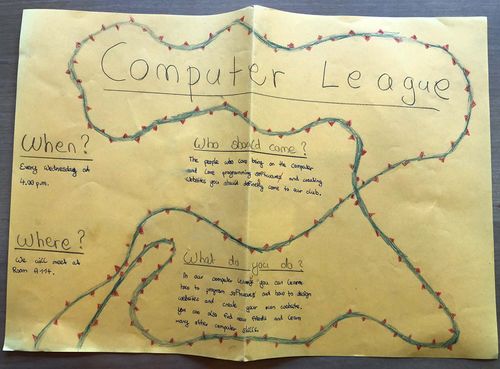 Computer League
When?
Every Wednesday at
4.00 p.m.
Who should come?
The people who love being on the computer
and love programming softwares and creating
websites you should definitely come to our club.
Where?
We will meet at
Room A114.
What do you do?
In our computer league you can learn
how to program softwares and how to design
websites and create your own website.
You can also find new friends and learn
many other computer skills.